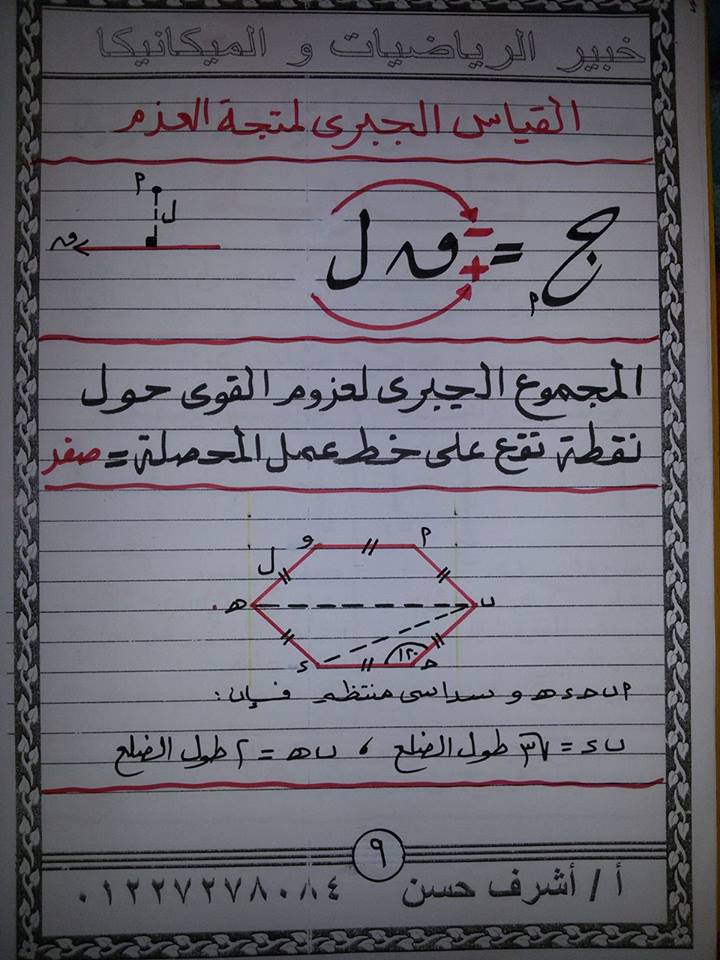 خبير الرياضيات و الميكانيكا
القياس الجبرى لمتجة العزم
م
ل
ق
ج م = ± ق ل
المجموع الجبرى لعزوم القوى حول
نقطة تقع على خط عمل المحصلة = صفر
و م
ل
ه ب
١٢٠
ء ح
م ب ح ء ه و سداسى منتظم فإن :
ب ء = √٣ طول الضلع ، ب ه = ٢ طول الضلع
٩
أ / أشرف حسن ٠١٢٢٧٢٧٨٠٨٤